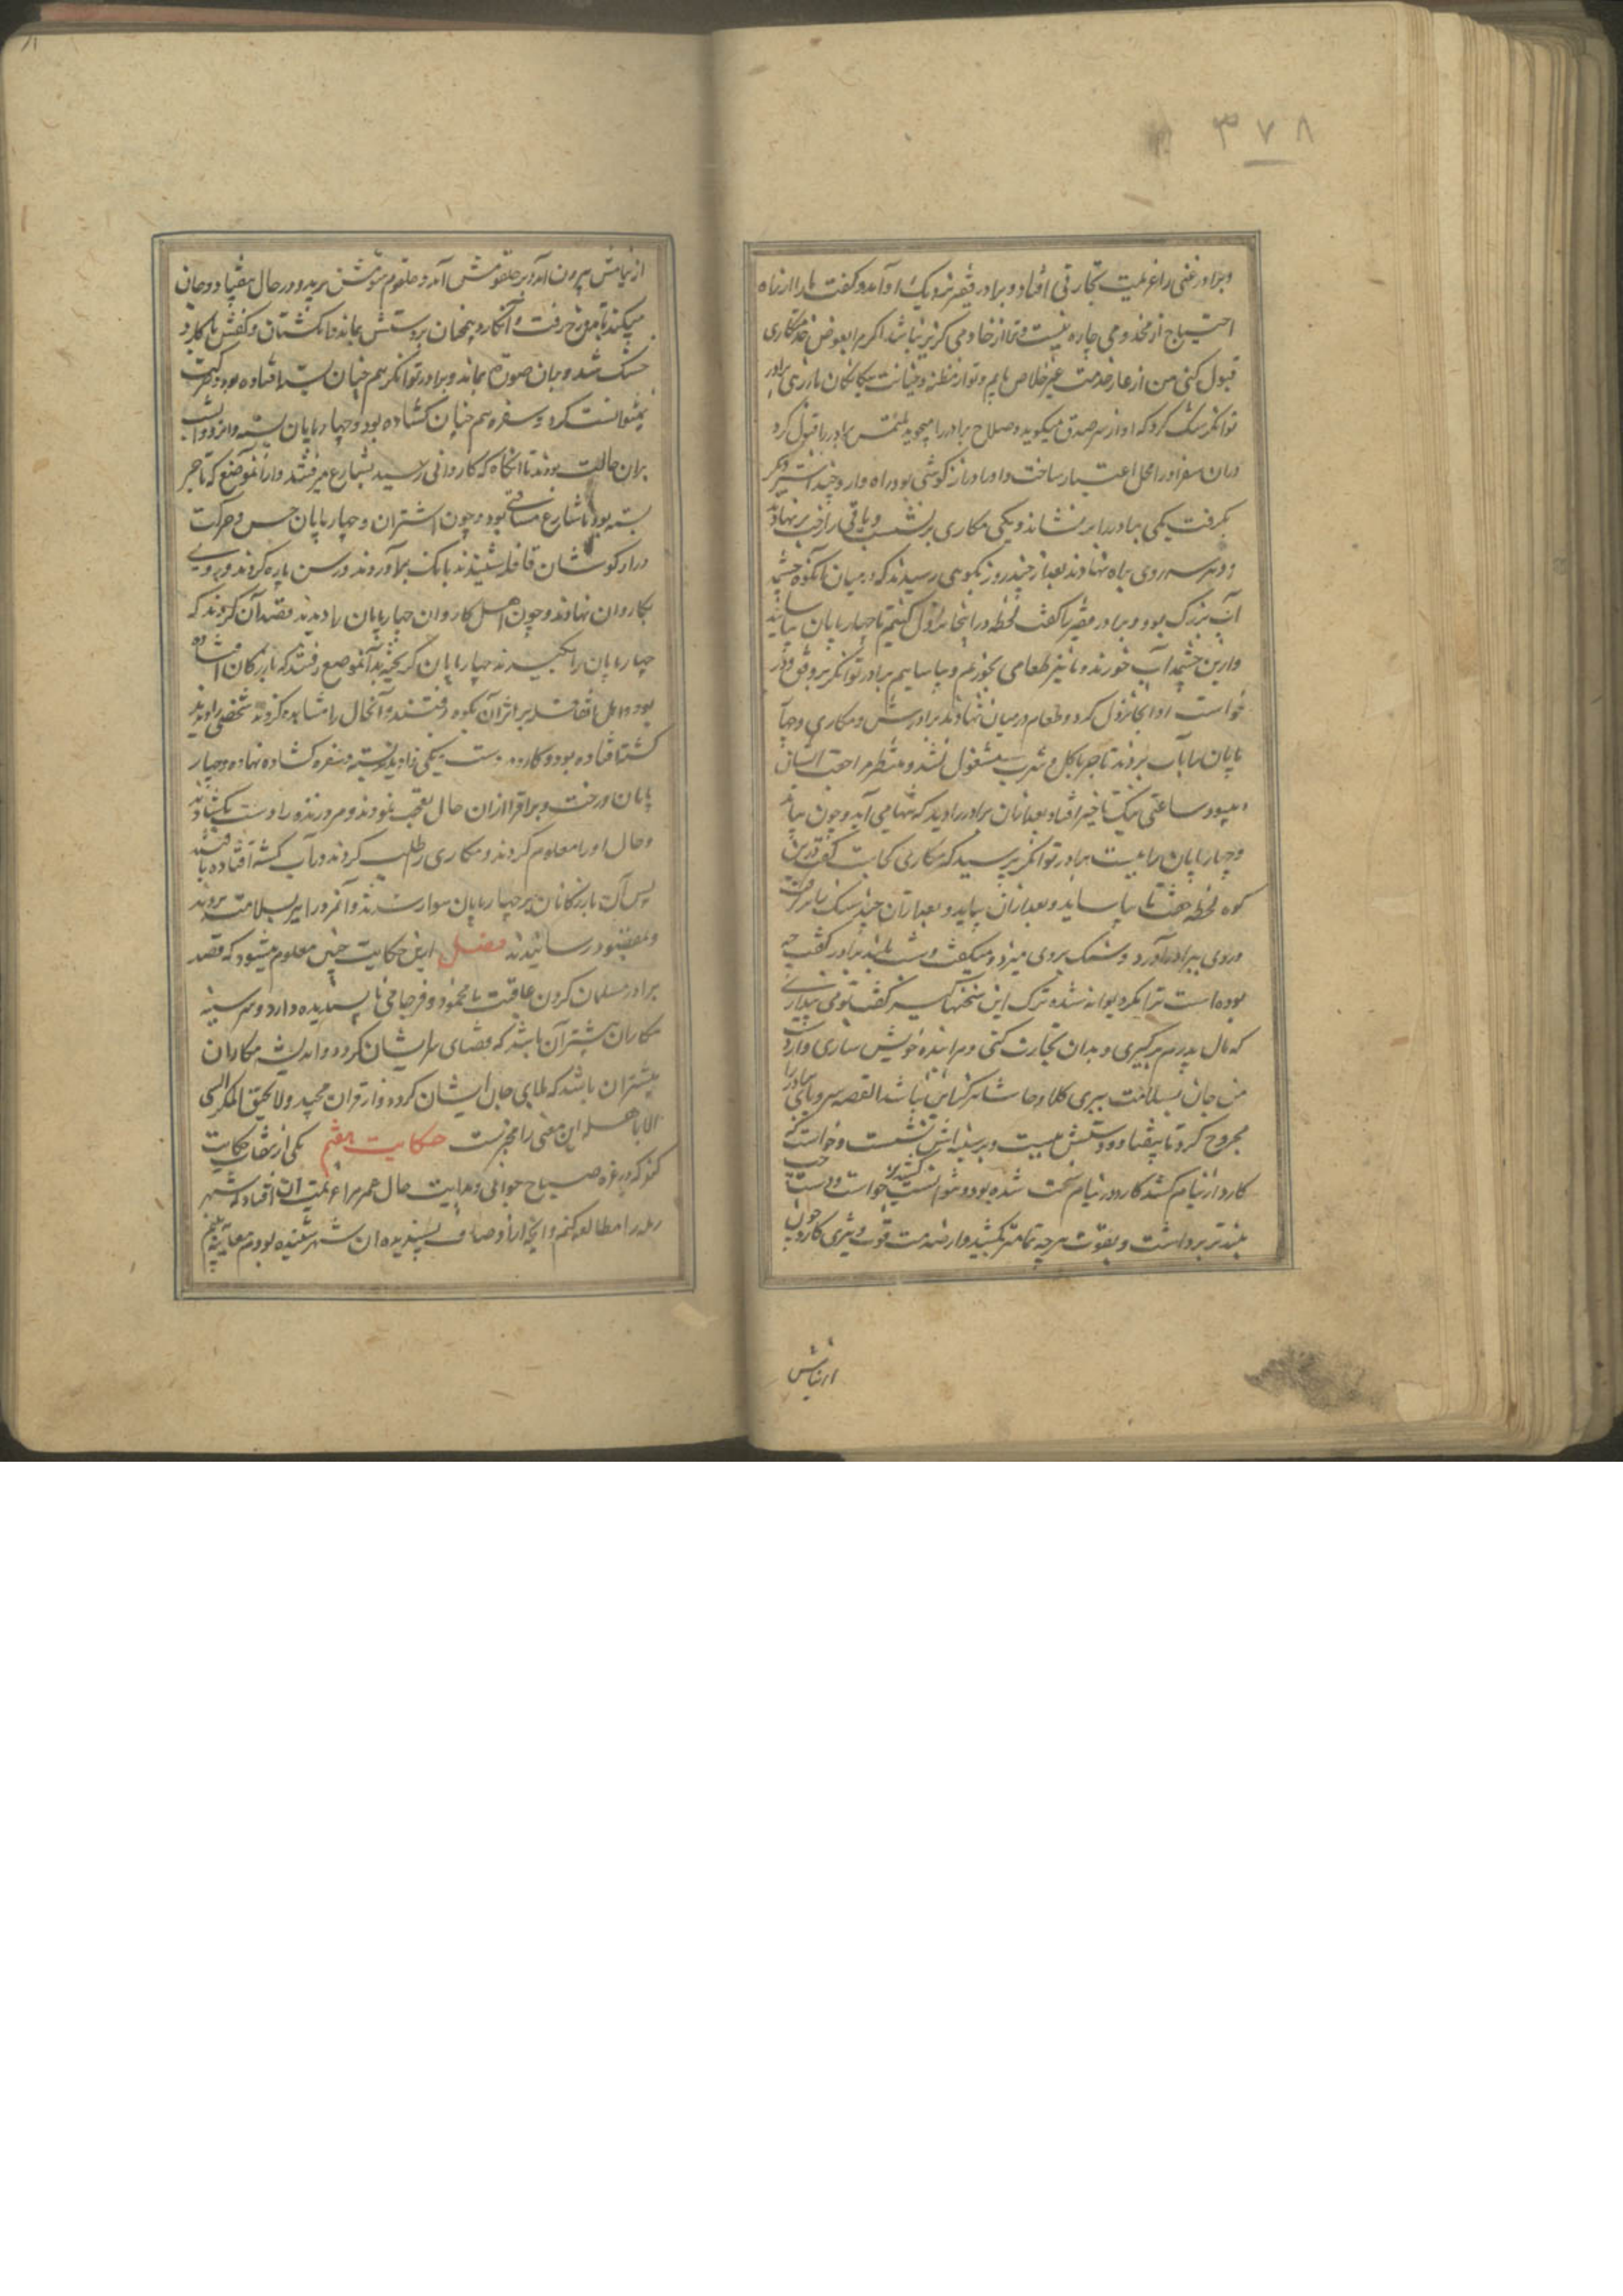 ٣٧٨
و برادر غنی را عزیمت تجارتی افتاد و برادر فقیر نزدیک او آمد و گفت مارا از راه
احتیاج از مخدومی چاره نیست و ترا از خادمی گزیر نباشد اگر مرا بعوض خدمتکاری
قبول کنی من از عار خدمت غیر خلاص یابم و تو از مظنه و خیانت بیگانگان باز رهی برادر
توانگر شک کرد که او از سر صدق میگوید و صلاح برادر را میجوید ملتمس برادر را قبول کرد
و در آن سفر او را محل اعتبار ساخت و او را دراز گوشی بود راه وار و چند اشتر دیگر
بگرفت یکی برادر را بر نشاند و یکی مکاری بر نشست و باقی را رخت بر نهادند
و هر سه روی براه نهادند بعد از چند روز بکوهی رسیدند که در میان آنکوه چشمه
آب بزرگ بود و برادر فقیر گفت لحظه در اینجا نزول کنیم تا چهارپایان بیاسایند
و ازین چشمه آب خورند و ما نیز طعامی بخوریم و بیاساییم برادر توانگر بر وفق
خواست او آنجا نزول کرد و طعام در میان نهادند برادرش و مکاری و چهار
پایان را بآب بردند تاجر باکل و شرب مشغول نشد و منتظر مراجعت ایشان
میبود ساعتی نیک تاخیر افتاد بعد از آن برادر را دید که تنها می آید و چون بیامد
و چهارپایان را ببست برادر توانگر پرسید که مکاری کجاست گفت درین
کوه لحظه بخفت تا بیاساید و بعد از آن بیاید و بعد از آن چند سنگ برگرفت
و روی ببرادر آورد و سنگ بروی میزد و میگفت دست باید برادر گفت چه
بوده است ترا مگر دیوانه شده ترک این سخنها گیر گفت تو می پنداری
که مال پدرم برگیری و بدان تجارت کنی و مرا بنده خویش سازی و از دست
من جان بسلامت ببری کلا و حاشا هرگز این نباشد القصه سر و پای برادر را
مجروح کرد تا بیفتاد و دستش ببست و بر سینه اش نشست و خواست که
کارد از نیام کشد کارد در نیام سخت شده بود و نتوانست کشیدن خواست و دست چپ
بلندتر برداشت و بقوت هر چه تمامتر بکشید و از صدمت قوت و تیزی کارد چون
از نیامش
از نیامش بیرون آمد بر حلقومش آمد و حلقوم شومش ببرید و در حال بیفتاد و جان
میکند تا بدوزخ رفت و آن کارد همچنان بر دستش بماند و انگشتان و کفش با کارد
خشک شد و بدان صورت بماند و برادر توانگر هم چنان بسته افتاده بود و حرکت
نمیتوانست کرد و سفره هم چنان گشاده بود و چهارپایان بسته و آنروز و آنشب
بران حالت بودند تا آنگاه که کاروانی رسید بشارع میرفتند و از آنموضع که تاجر
بسته بود تا شارع مسافتی بود و چون اشتران و چهارپایان حس و حرکت
دراز گوشان قافله شنیدند بانگ برآوردند و رسن پاره کردند و روی
بکاروان نهادند و چون اهل کاروان چهارپایان را دیدند قصد آن کردند که
چهارپایان را بگیرند چهارپایان گریخته بدان موضع رفتند که بازرگان افتاده
بود و اهل قافله بر اثر آن بکوه رفتند و آنحال را مشاهده کردند شخصی را دیدند
کشته افتاده بود و کارد در دست و یکی را دیدند بسته و سفره گشاده نهاده و چهار
پایان و رخت برقرار از آن حال تعجب نمودند و مرد زنده را دست بگشادند
و حال او را معلوم کردند و مکاری را طلب کردند در آب کشته افتاده یافتند
پس آن بازرگانان بر چهارپایان سوار شدند و آنمرد را نیز بسلامت بردند
و بمقصود رسانیدند فصل ازین حکایت چنین معلوم میشود که قصد
برادر مسلمان کردن عاقبت نامحمود و فرجامی ناپسندیده دارد و هر سینه
مکاران بیشتر آن باشد که قضای سر ایشان گردد و اندیشه مکاران
بیشتر آن باشد که بلای جان ایشان گردد و از قران مجید ولا یحیق المکر السی
الا باهله این معنی را مخبر است حکایت هفتم یکی از ثقات حکایت
کند که در غره صباح جوانی و بدایت حال عمر مرا عزیمت آن افتاد که شهر
رمله را مطالعه کنم و آنچه از اوصاف پسندیده آن شهر شنیده بودم معاینه ببینم